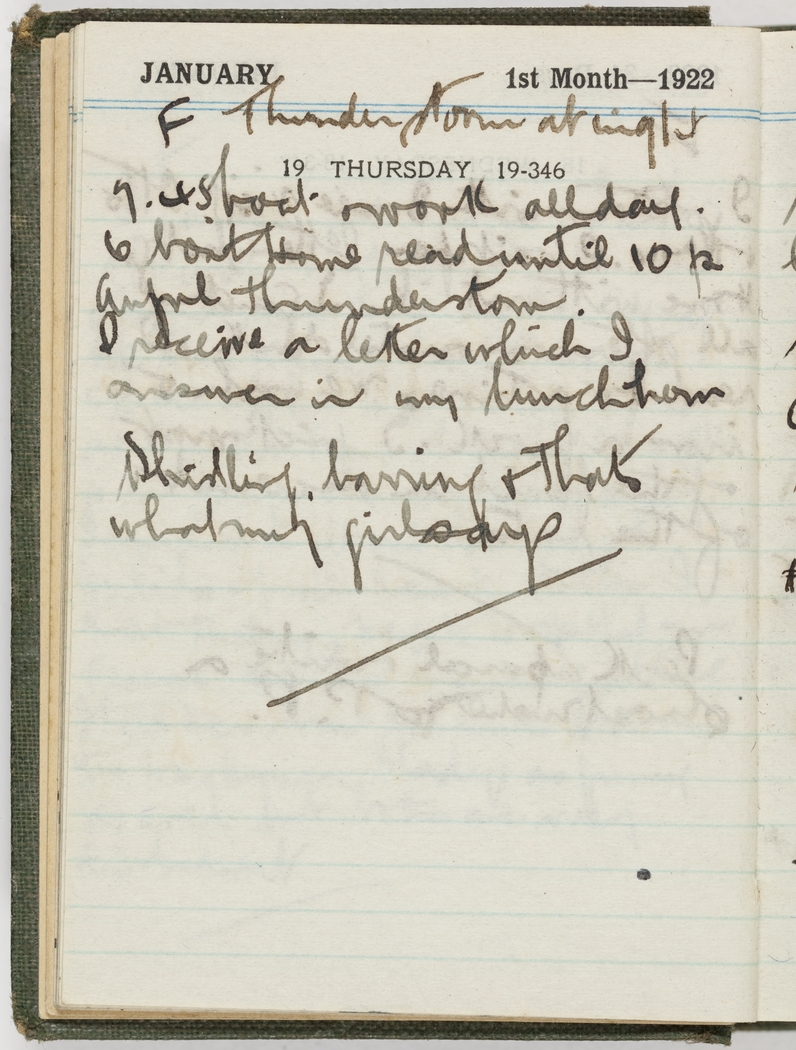 JANUARY 1st Month—1922
F Thunderstorm at night
19 THURSDAY 19-346
7.45 boat & work all day.
6 boat Home read until 10 p
Awful thunderstorm.
I receive a letter which I
answer in my lunch hour
barring & Thats
what my girl says